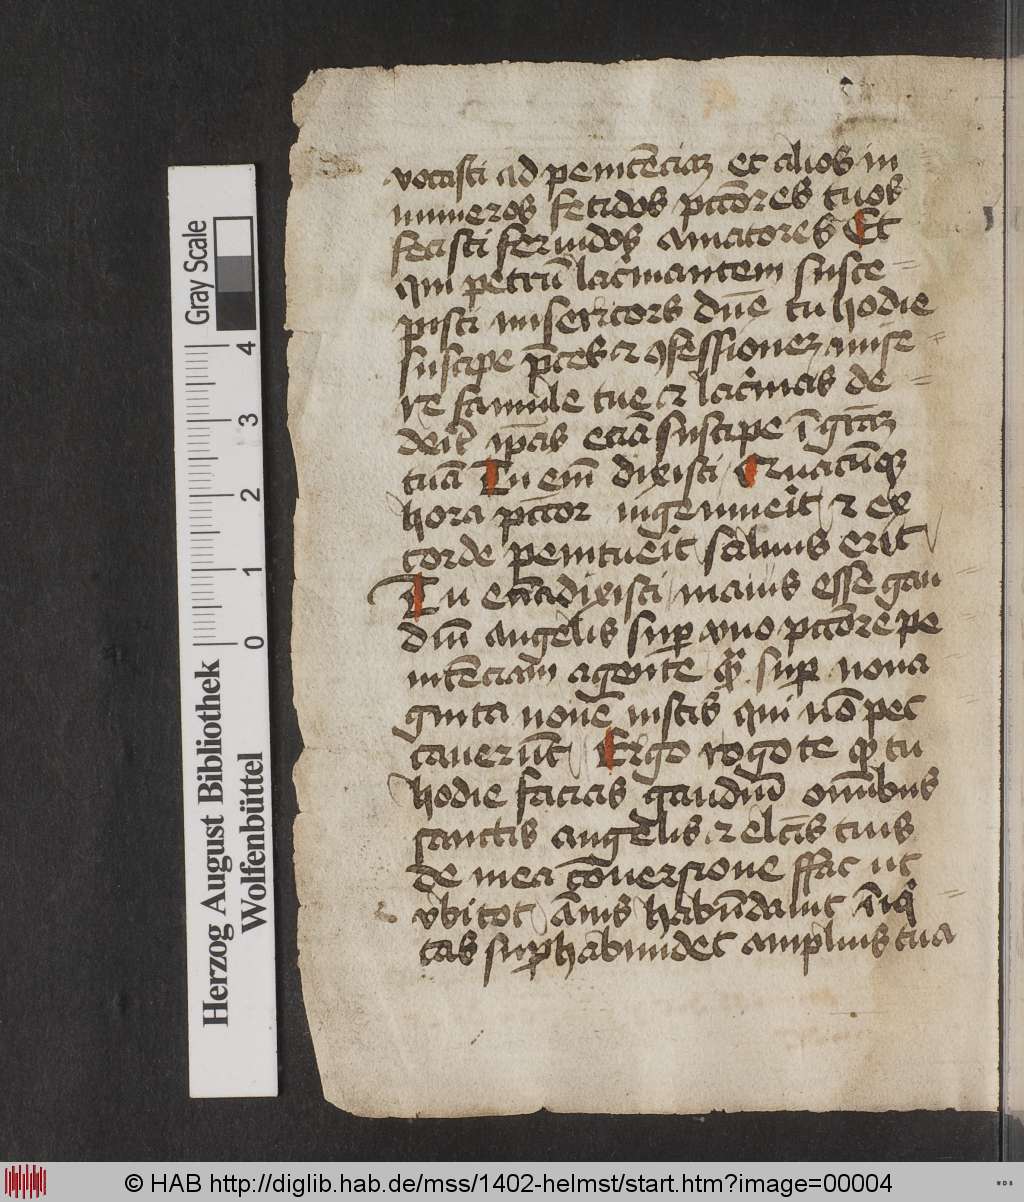 vocasti ad penitēciaꝫ et alios in
numeros fetidos pctōres tuos
fecisti feruidos amatores Et
qui petrū lacrimantem susce
pisti misericors dn̄e tu hodie
suscipe p̄ces ⁊ ꝯfessioneꝫ mise
re famule tue ⁊ lac̓mas de
tuā Tu em̄ dixisti Quacūqꝫ
hora pctōr ingemueīt ⁊ ex
corde penitueīt saluus erit
Tu etiā dixisti maius esse gau
diū angelis suꝑ vno pctōre pe
nitēciam agente suꝑ nona
ginta nouē iustis qui nō pec
cauerūt Ergo rogo te tu
hodie facias gaudiū om̄ibus
sanctis angelis ⁊ elc̄is tuis
de mea cōuersione ffac ut
vbi tot annis habūdauit
tas suꝑhabundet amplius tua
Gray Scale
0 1 2 3 4
Herzog August Bibliothek
Wolfenbüttel
© HAB http://diglib.hab.de/mss/1402-helmst/start.htm?image=00004